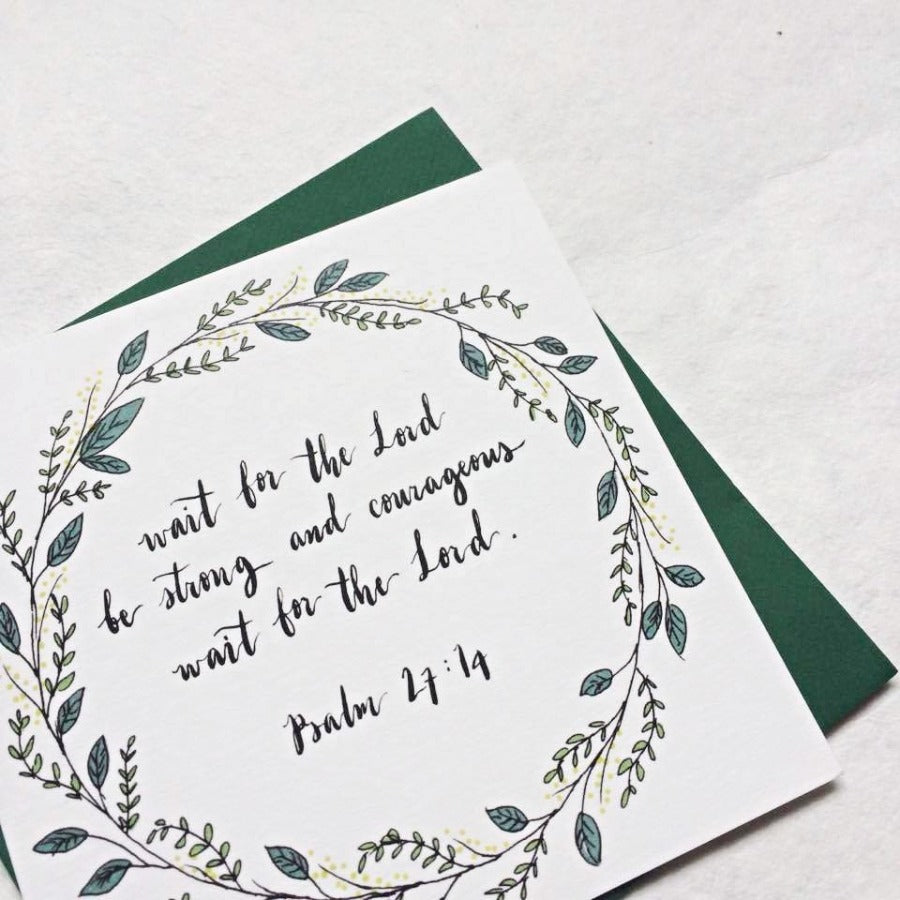 wait for the Lord
be strong and courageous
wait for the Lord.
Psalm 27:14